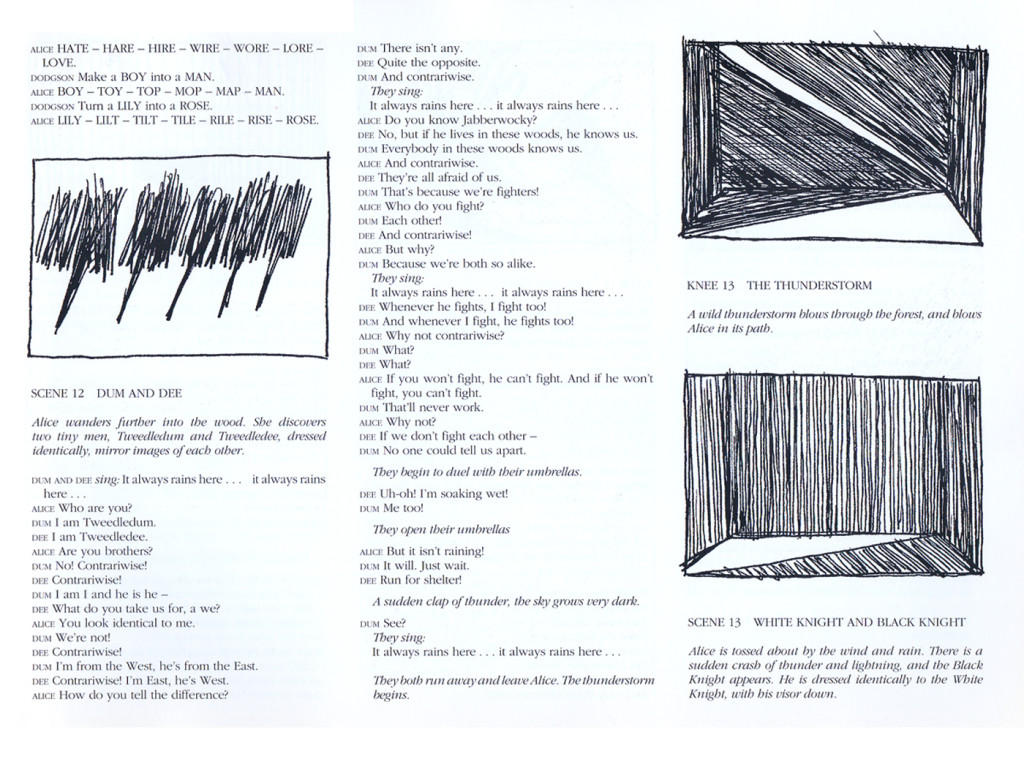 ALICE HATE – HARE – HIRE – WIRE – WORE – LORE –
LOVE.
DODGSON Make a BOY into a MAN.
ALICE BOY – TOY – TOP – MOP – MAP – MAN.
DODGSON Turn a LILY into a ROSE.
ALICE LILY – LILT – TILT – TILE – RILE – RISE – ROSE.
SCENE 12 DUM AND DEE
Alice wanders further into the wood. She discovers
two tiny men, Tweedledum and Tweedledee, dressed
identically, mirror images of each other.
DUM AND DEE sing: It always rains here . . . it always rains
here . . .
ALICE Who are you?
DUM I am Tweedledum.
DEE I am Tweedledee.
ALICE Are you brothers?
DUM No! Contrariwise!
DEE Contrariwise!
DUM I am I and he is he –
DEE What do you take us for, a we?
ALICE You look identical to me.
DUM We're not!
DEE Contrariwise!
DUM I'm from the West, he's from the East.
DEE Contrariwise! I'm East, he's West.
ALICE How do you tell the difference?
DUM There isn't any.
DEE Quite the opposite.
DUM And contrariwise.
They sing:
It always rains here . . . it always rains here . . .
ALICE Do you know Jabberwocky?
DEE No, but if he lives in these woods, he knows us.
DUM Everybody in these woods knows us.
ALICE And contrariwise.
DEE They're all afraid of us.
DUM That's because we're fighters!
ALICE Who do you fight?
DUM Each other!
DEE And contrariwise!
ALICE But why?
DUM Because we're both so alike.
They sing:
It always rains here . . . it always rains here . . .
DEE Whenever he fights, I fight too!
DUM And whenever I fight, he fights too!
ALICE Why not contrariwise?
DUM What?
DEE What?
ALICE If you won't fight, he can't fight. And if he won't
fight, you can't fight.
DUM That'll never work.
ALICE Why not?
DEE If we don't fight each other –
DUM No one could tell us apart.
They begin to duel with their umbrellas.
DEE Uh-oh! I'm soaking wet!
DUM Me too!
They open their umbrellas
ALICE But it isn't raining!
DUM It will. Just wait.
DEE Run for shelter!
A sudden clap of thunder, the sky grows very dark.
DUM See?
They sing:
It always rains here . . . it always rains here . . .
They both run away and leave Alice. The thunderstorm
begins.
KNEE 13 THE THUNDERSTORM
A wild thunderstorm blows through the forest, and blows
Alice in its path.
SCENE 13 WHITE KNIGHT AND BLACK KNIGHT
Alice is tossed about by the wind and rain. There is a
sudden crash of thunder and lightning, and the Black
Knight appears. He is dressed identically to the White
Knight, with his visor down.